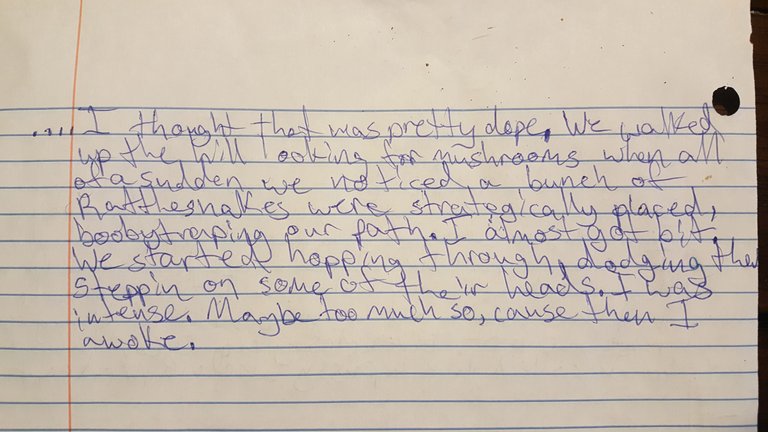 ..... I thought that was pretty dope. We walked
up the hill looking for mushrooms when all
of a sudden we noticed a bunch of
Rattlesnakes were strategically placed,
boobytraping our path. I almost got bit.
We started hopping through, dodging them
steppin on some of their heads. I was
intense. Maybe too much so, cause then I
awoke.